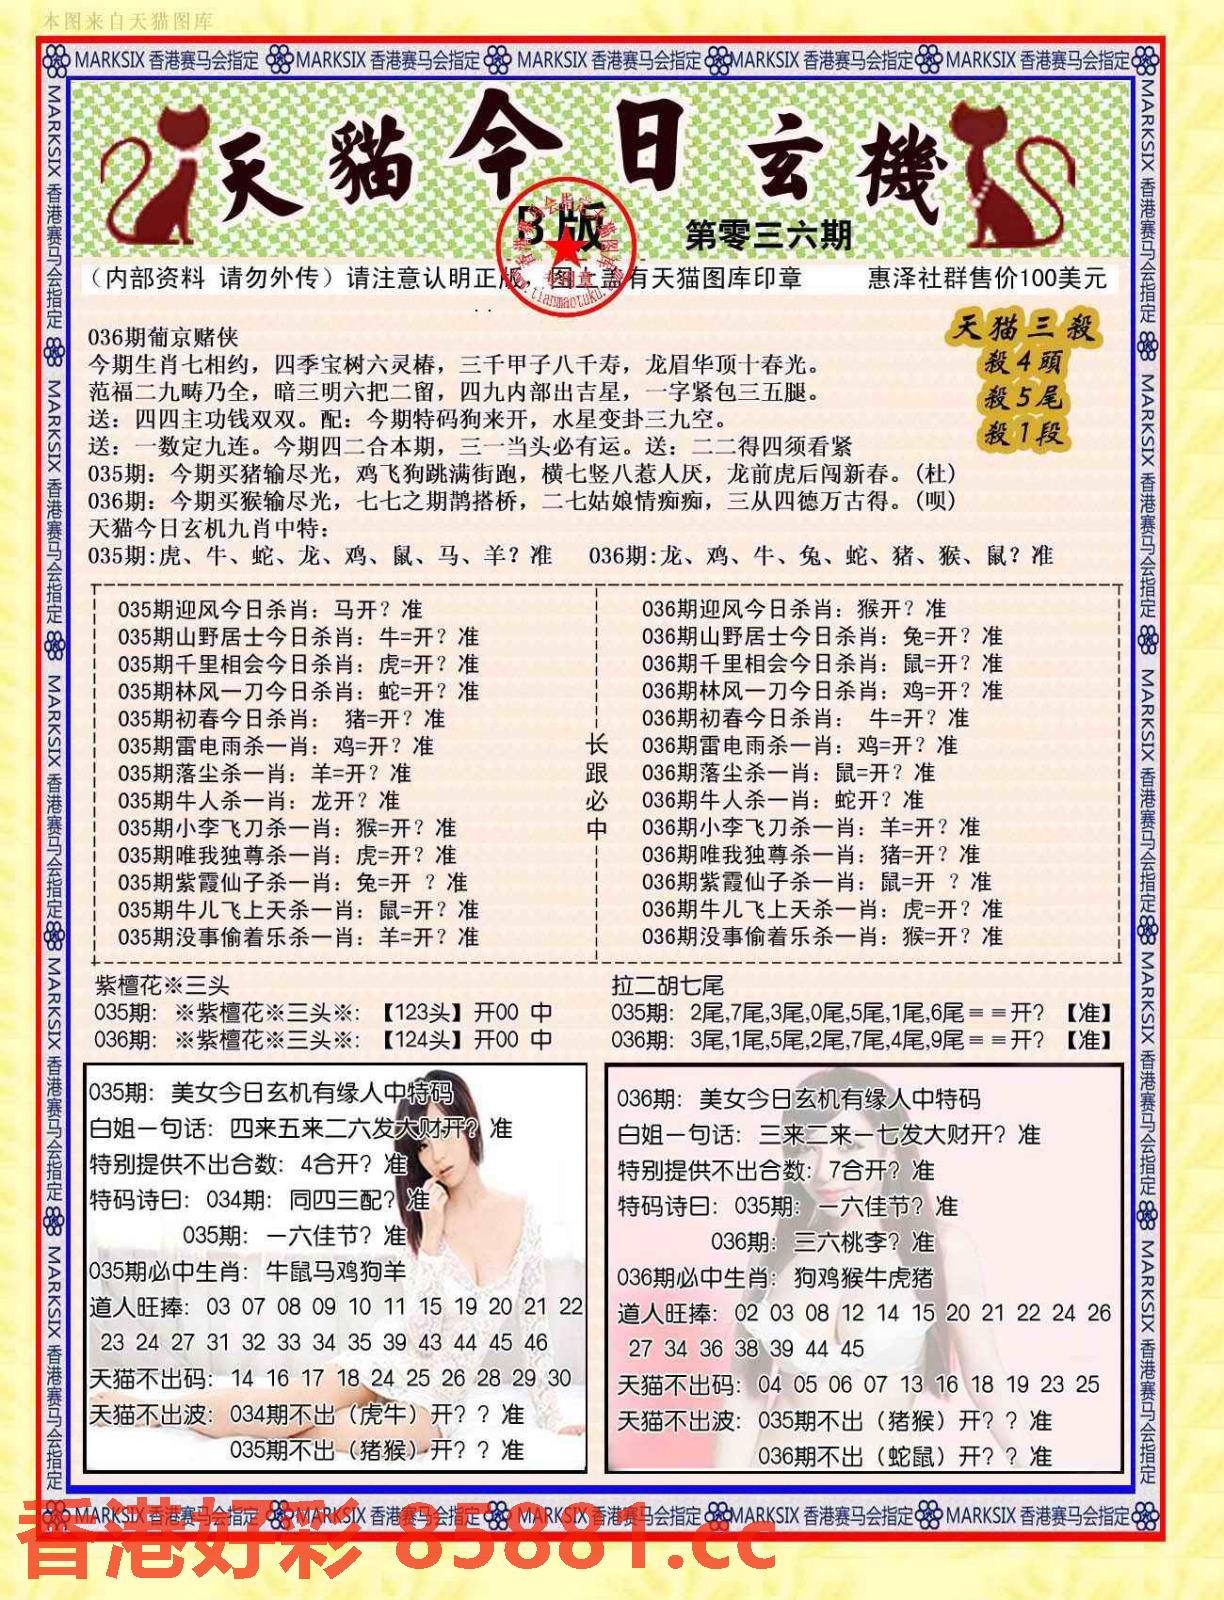 本图来自天猫图库
MARKSIX 香港赛马会指定 MARKSIX 香港赛马会指定 MARKSIX 香港赛马会指定 MARKSIX 香港赛马会指定 MARKSIX 香港赛马会指定
MARKSIX 香港赛马会指定 MARKSIX 香港赛马会指定 MARKSIX 香港赛马会指定 MARKSIX 香港赛马会指定 MARKSIX 香港赛马会指定
MARKSIX 香港赛马会指定 MARKSIX 香港赛马会指定 MARKSIX 香港赛马会指定 MARKSIX 香港赛马会指定 MARKSIX 香港赛马会指定
天貓今日玄機
B版
第零三六期
专用章
www.tianmaotuku.com
（内部资料 请勿外传）请注意认明正版 图 盖有天猫图库印章 惠泽社群售价100美元
天猫三殺
殺4頭
殺5尾
殺1段
036期葡京赌侠
今期生肖七相约，四季宝树六灵椿，三千甲子八千寿，龙眉华顶十春光。
范福二九畴乃全，暗三明六把二留，四九内部出吉星，一字紧包三五腿。
送：四四主功钱双双。配：今期特码狗来开，水星变卦三九空。
送：一数定九连。今期四二合本期，三一当头必有运。送：二二得四须看紧
035期：今期买猪输尽光，鸡飞狗跳满街跑，横七竖八惹人厌，龙前虎后闯新春。(杜)
036期：今期买猴输尽光，七七之期鹊搭桥，二七姑娘情痴痴，三从四德万古得。(呗)
天猫今日玄机九肖中特：
035期:虎、牛、蛇、龙、鸡、鼠、马、羊？准 036期:龙、鸡、牛、兔、蛇、猪、猴、鼠？准
035期迎风今日杀肖：马开？准
035期山野居士今日杀肖：牛=开？准
035期千里相会今日杀肖：虎=开？准
035期林风一刀今日杀肖：蛇=开？准
035期初春今日杀肖： 猪=开？准
035期雷电雨杀一肖：鸡=开？准
035期落尘杀一肖：羊=开？准
035期牛人杀一肖：龙开？准
035期小李飞刀杀一肖：猴=开？准
035期唯我独尊杀一肖：虎=开？准
035期紫霞仙子杀一肖：兔=开 ？准
035期牛儿飞上天杀一肖：鼠=开？准
035期没事偷着乐杀一肖：羊=开？准
长
跟
必
中
036期迎风今日杀肖：猴开？准
036期山野居士今日杀肖：兔=开？准
036期千里相会今日杀肖：鼠=开？准
036期林风一刀今日杀肖：鸡=开？准
036期初春今日杀肖： 牛=开？准
036期雷电雨杀一肖：鸡=开？准
036期落尘杀一肖：鼠=开？准
036期牛人杀一肖：蛇开？准
036期小李飞刀杀一肖：羊=开？准
036期唯我独尊杀一肖：猪=开？准
036期紫霞仙子杀一肖：鼠=开 ？准
036期牛儿飞上天杀一肖：虎=开？准
036期没事偷着乐杀一肖：猴=开？准
紫檀花※三头
035期：※紫檀花※三头※：【123头】开00 中
036期：※紫檀花※三头※：【124头】开00 中
拉二胡七尾
035期：2尾,7尾,3尾,0尾,5尾,1尾,6尾＝＝开？【准】
036期：3尾,1尾,5尾,2尾,7尾,4尾,9尾＝＝开？【准】
035期：美女今日玄机有缘人中特码
白姐一句话：四来五来二六发大财开？准
特别提供不出合数：4合开？准
特码诗曰：034期：同四三配？准
035期：一六佳节？准
035期必中生肖：牛鼠马鸡狗羊
道人旺捧：03 07 08 09 10 11 15 19 20 21 22
23 24 27 31 32 33 34 35 39 43 44 45 46
天猫不出码：14 16 17 18 24 25 26 28 29 30
天猫不出波：034期不出（虎牛）开？？准
035期不出（猪猴）开？？准
036期：美女今日玄机有缘人中特码
白姐一句话：三来二来一七发大财开？准
特别提供不出合数：7合开？准
特码诗曰：035期：一六佳节？准
036期：三六桃李？准
036期必中生肖：狗鸡猴牛虎猪
道人旺捧：02 03 08 12 14 15 20 21 22 24 26
27 34 36 38 39 44 45
天猫不出码：04 05 06 07 13 16 18 19 23 25
天猫不出波：035期不出（猪猴）开？？准
036期不出（蛇鼠）开？？准
MARKSIX 香港赛马会指定 MARKSIX 香港赛马会指定 MARKSIX 香港赛马会指定 MARKSIX 香港赛马会指定 MARKSIX 香港赛马会指定
香港好彩 85881.cc